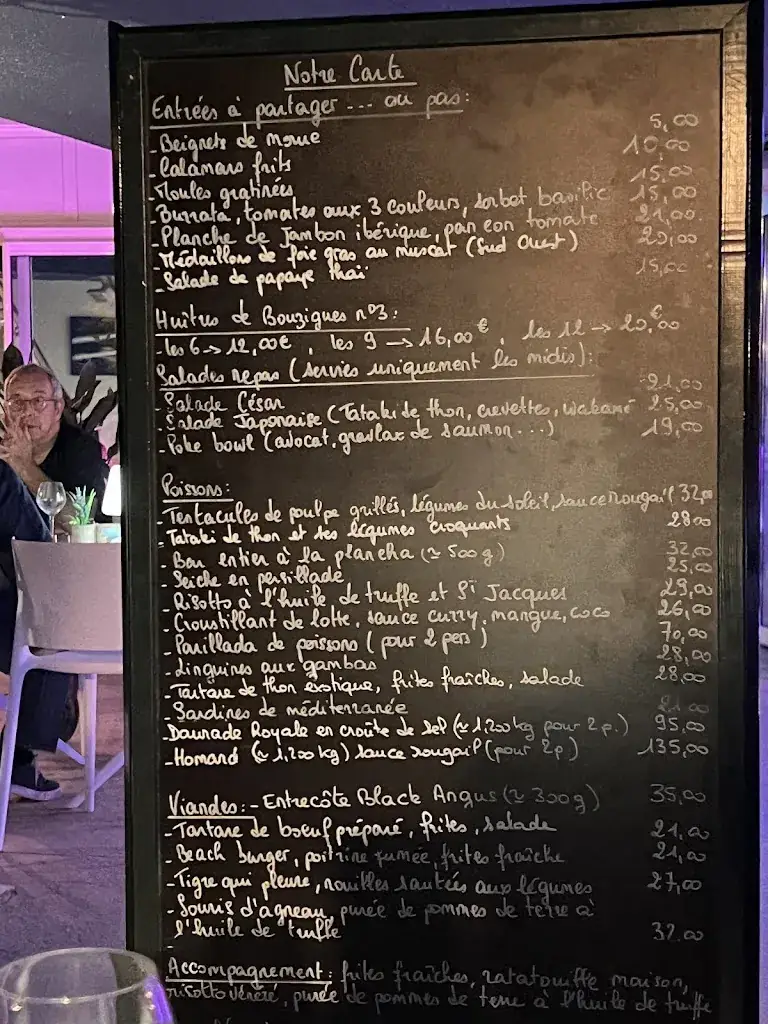 Notre Carte
Entrées à partager ... ou pas:
- Beignets de morue 5,00
- Calamars frits 10,00
- Moules gratinées 15,00
- Burrata, tomates aux 3 couleurs, sorbet basilic 15,00
- Planche de Jambon ibérique, pan con tomate 21,00
- Médaillons de foie gras au muscat (Sud Ouest) 20,00
- Salade de papaye thaï 15,00
Huitres de Bouzigues n°3:
- les 6 → 12,00€, les 9 → 16,00€, les 12 → 20,00€
Salades repas (servies uniquement les midis):
- Salade César 21,00
- Salade Japonaise (Tataki de thon, crevettes, wakamé 25,00
- Poke bowl (avocat, gravlax de saumon...) 19,00
Poissons:
- Tentacules de poulpe grillés, légumes du soleil, sauce rougail 32,00
- Tataki de thon et ses légumes croquants 28,00
- Bar entier à la plancha (≃ 500g) 32,00
- Seiche en persillade 25,00
- Risotto à l'huile de truffe et St Jacques 29,00
- Croustillant de lotte, sauce curry, mangue, coco 26,00
- Parillada de poissons (pour 2 pers) 70,00
- Linguines aux gambas 28,00
- Tartare de thon exotique, frites fraîches, salade 28,00
- Sardines de méditerranée 21,00
- Daurade Royale en croûte de sel (≃ 1,200kg pour 2p.) 95,00
- Homard (≃ 1,200kg) sauce rougail (pour 2p.) 135,00
Viandes: - Entrecôte Black Angus (≃ 300g) 35,00
- Tartare de boeuf préparé, frites, salade 21,00
- Beach burger, poitrine fumée, frites fraîche 21,00
- Tigre qui pleure, nouilles sautées aux légumes 27,00
- Souris d'agneau, purée de pommes de terre à
l'huile de truffe 32.00
-
Accompagnement: frites fraîches, ratatouille maison,
risotto vénéré, purée de pommes de terre à l'huile de truffe